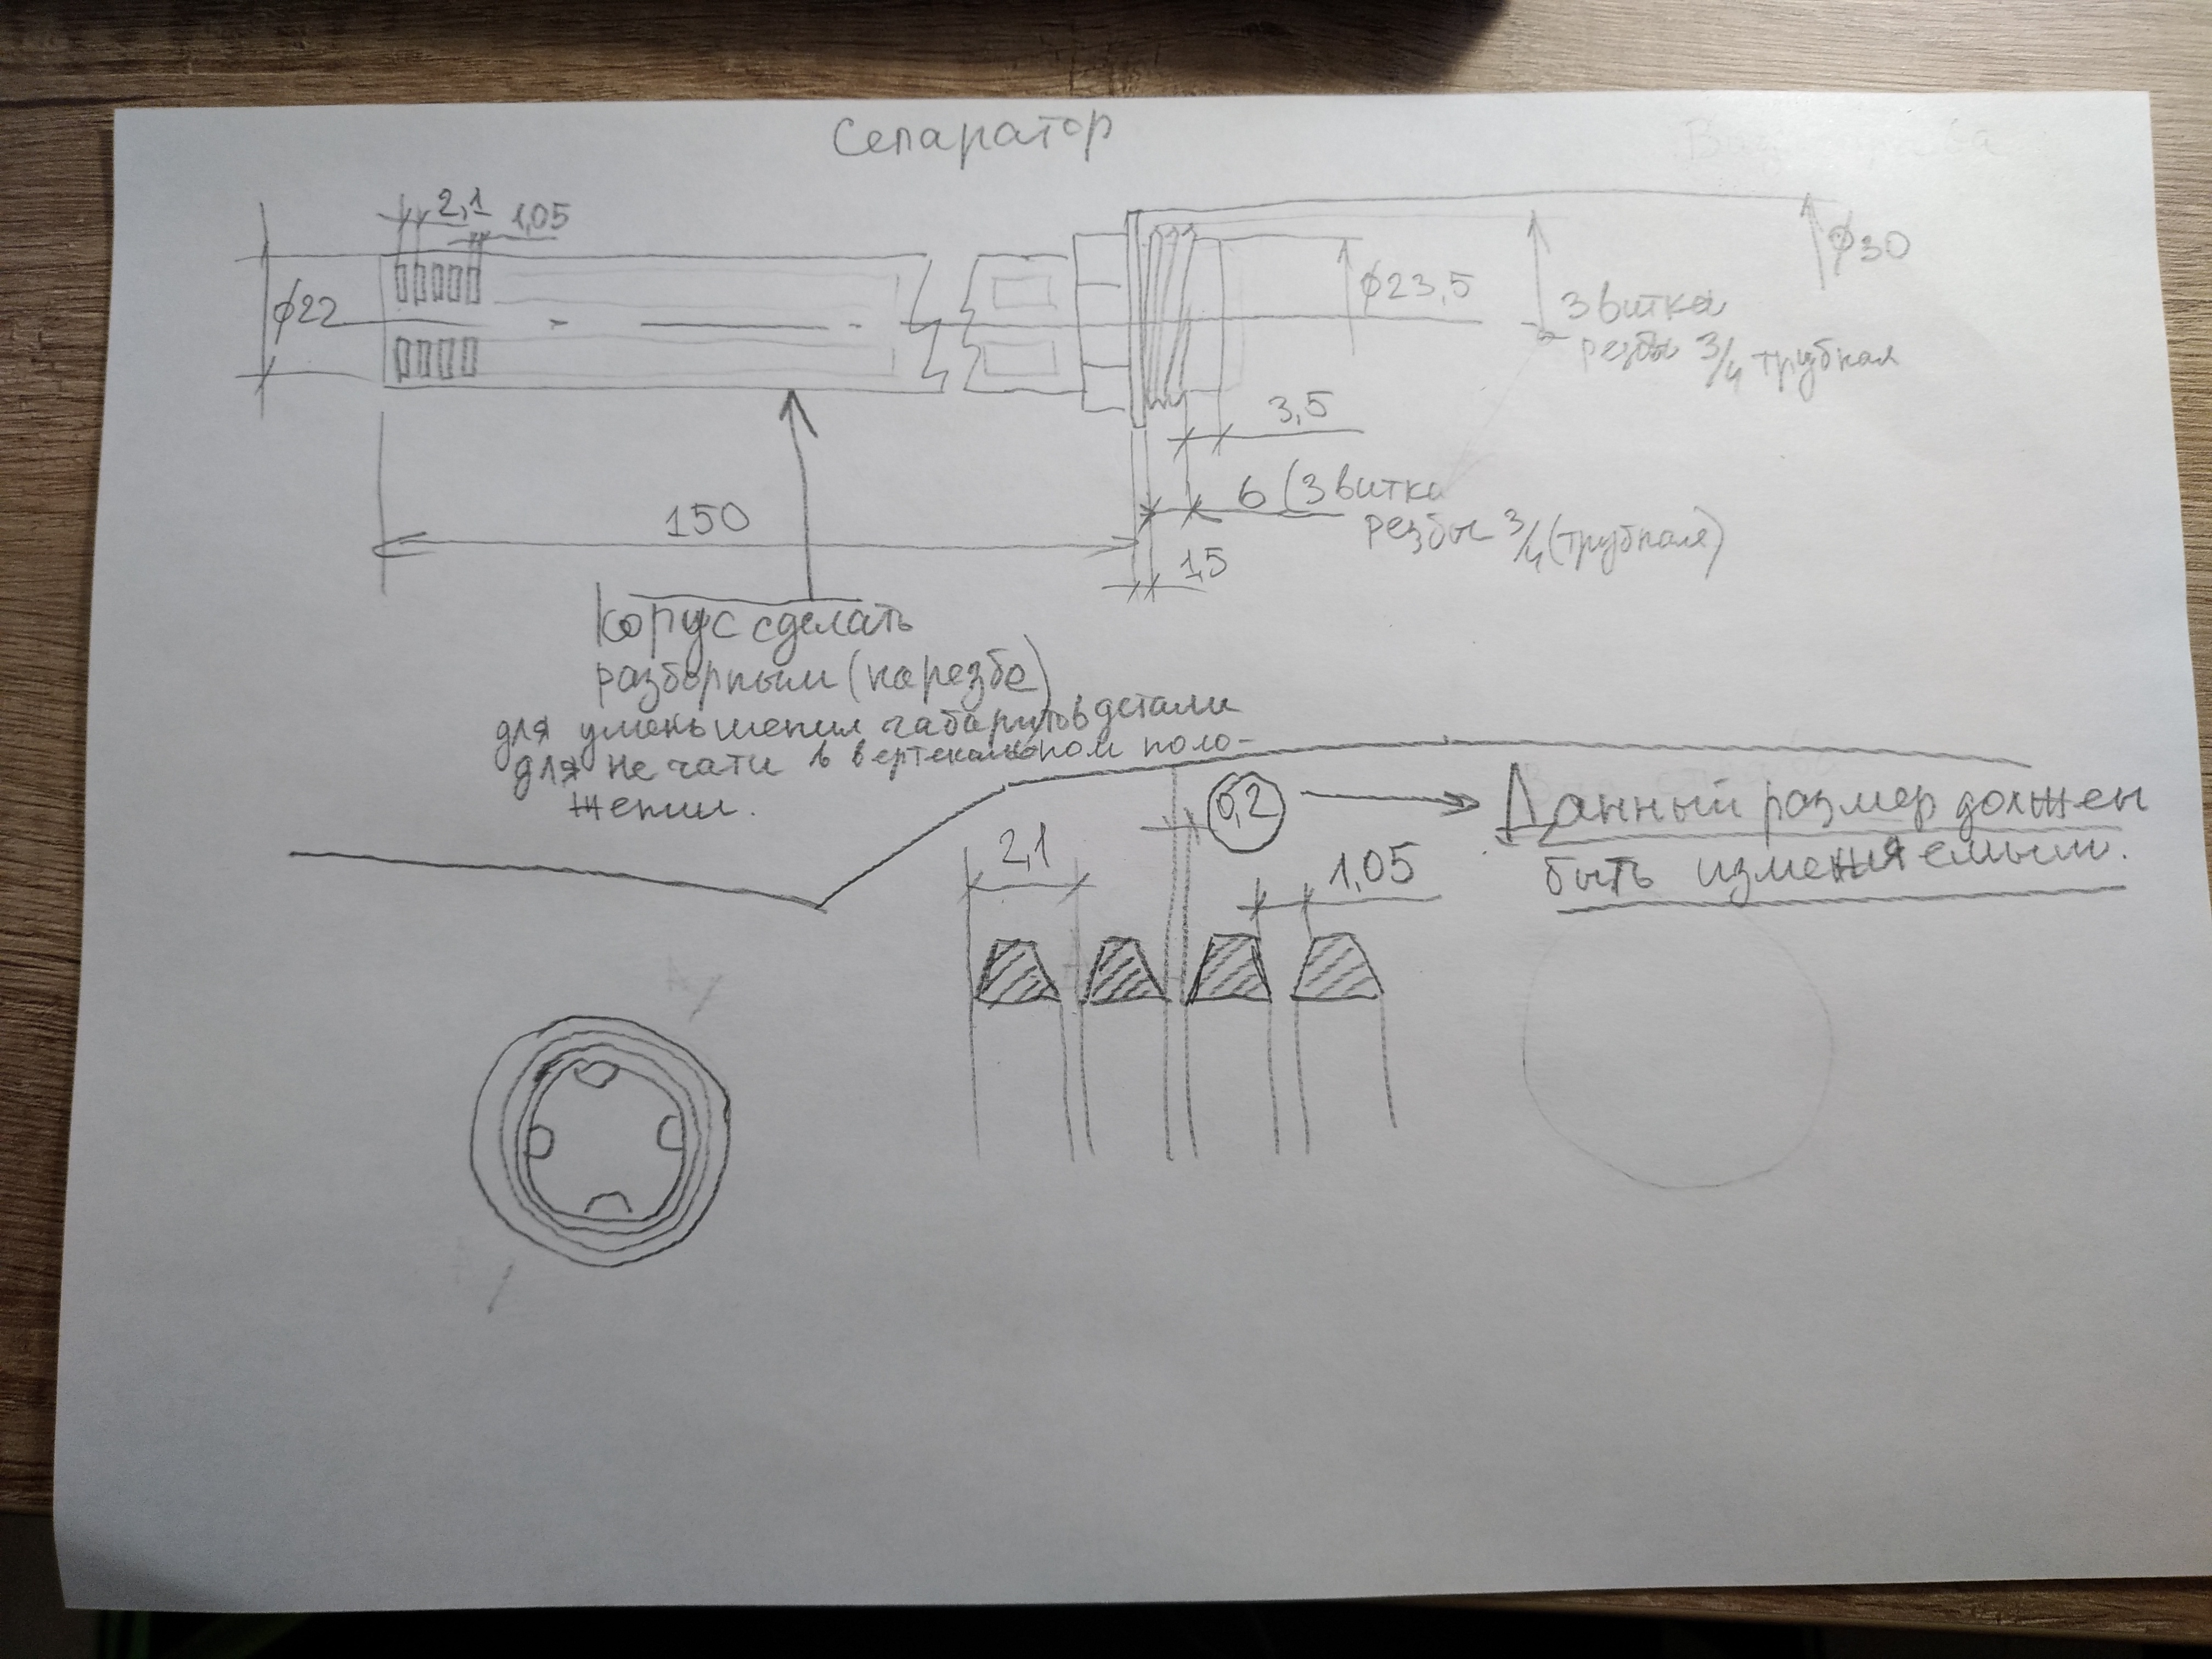 Сепаратор
2,1
1,05
φ22
φ23,5
φ30
3 витка
резбы 3/4 трубная
3,5
6 (3 витка
резбы 3/4 (трубная)
1,5
150
Корпус сделать
разборным (на резбе)
для уменьшения габаритов детали
для печати в вертекальном поло-
жении.
0,2
Данный размер должен
быть изменяемым.
2,1
1,05